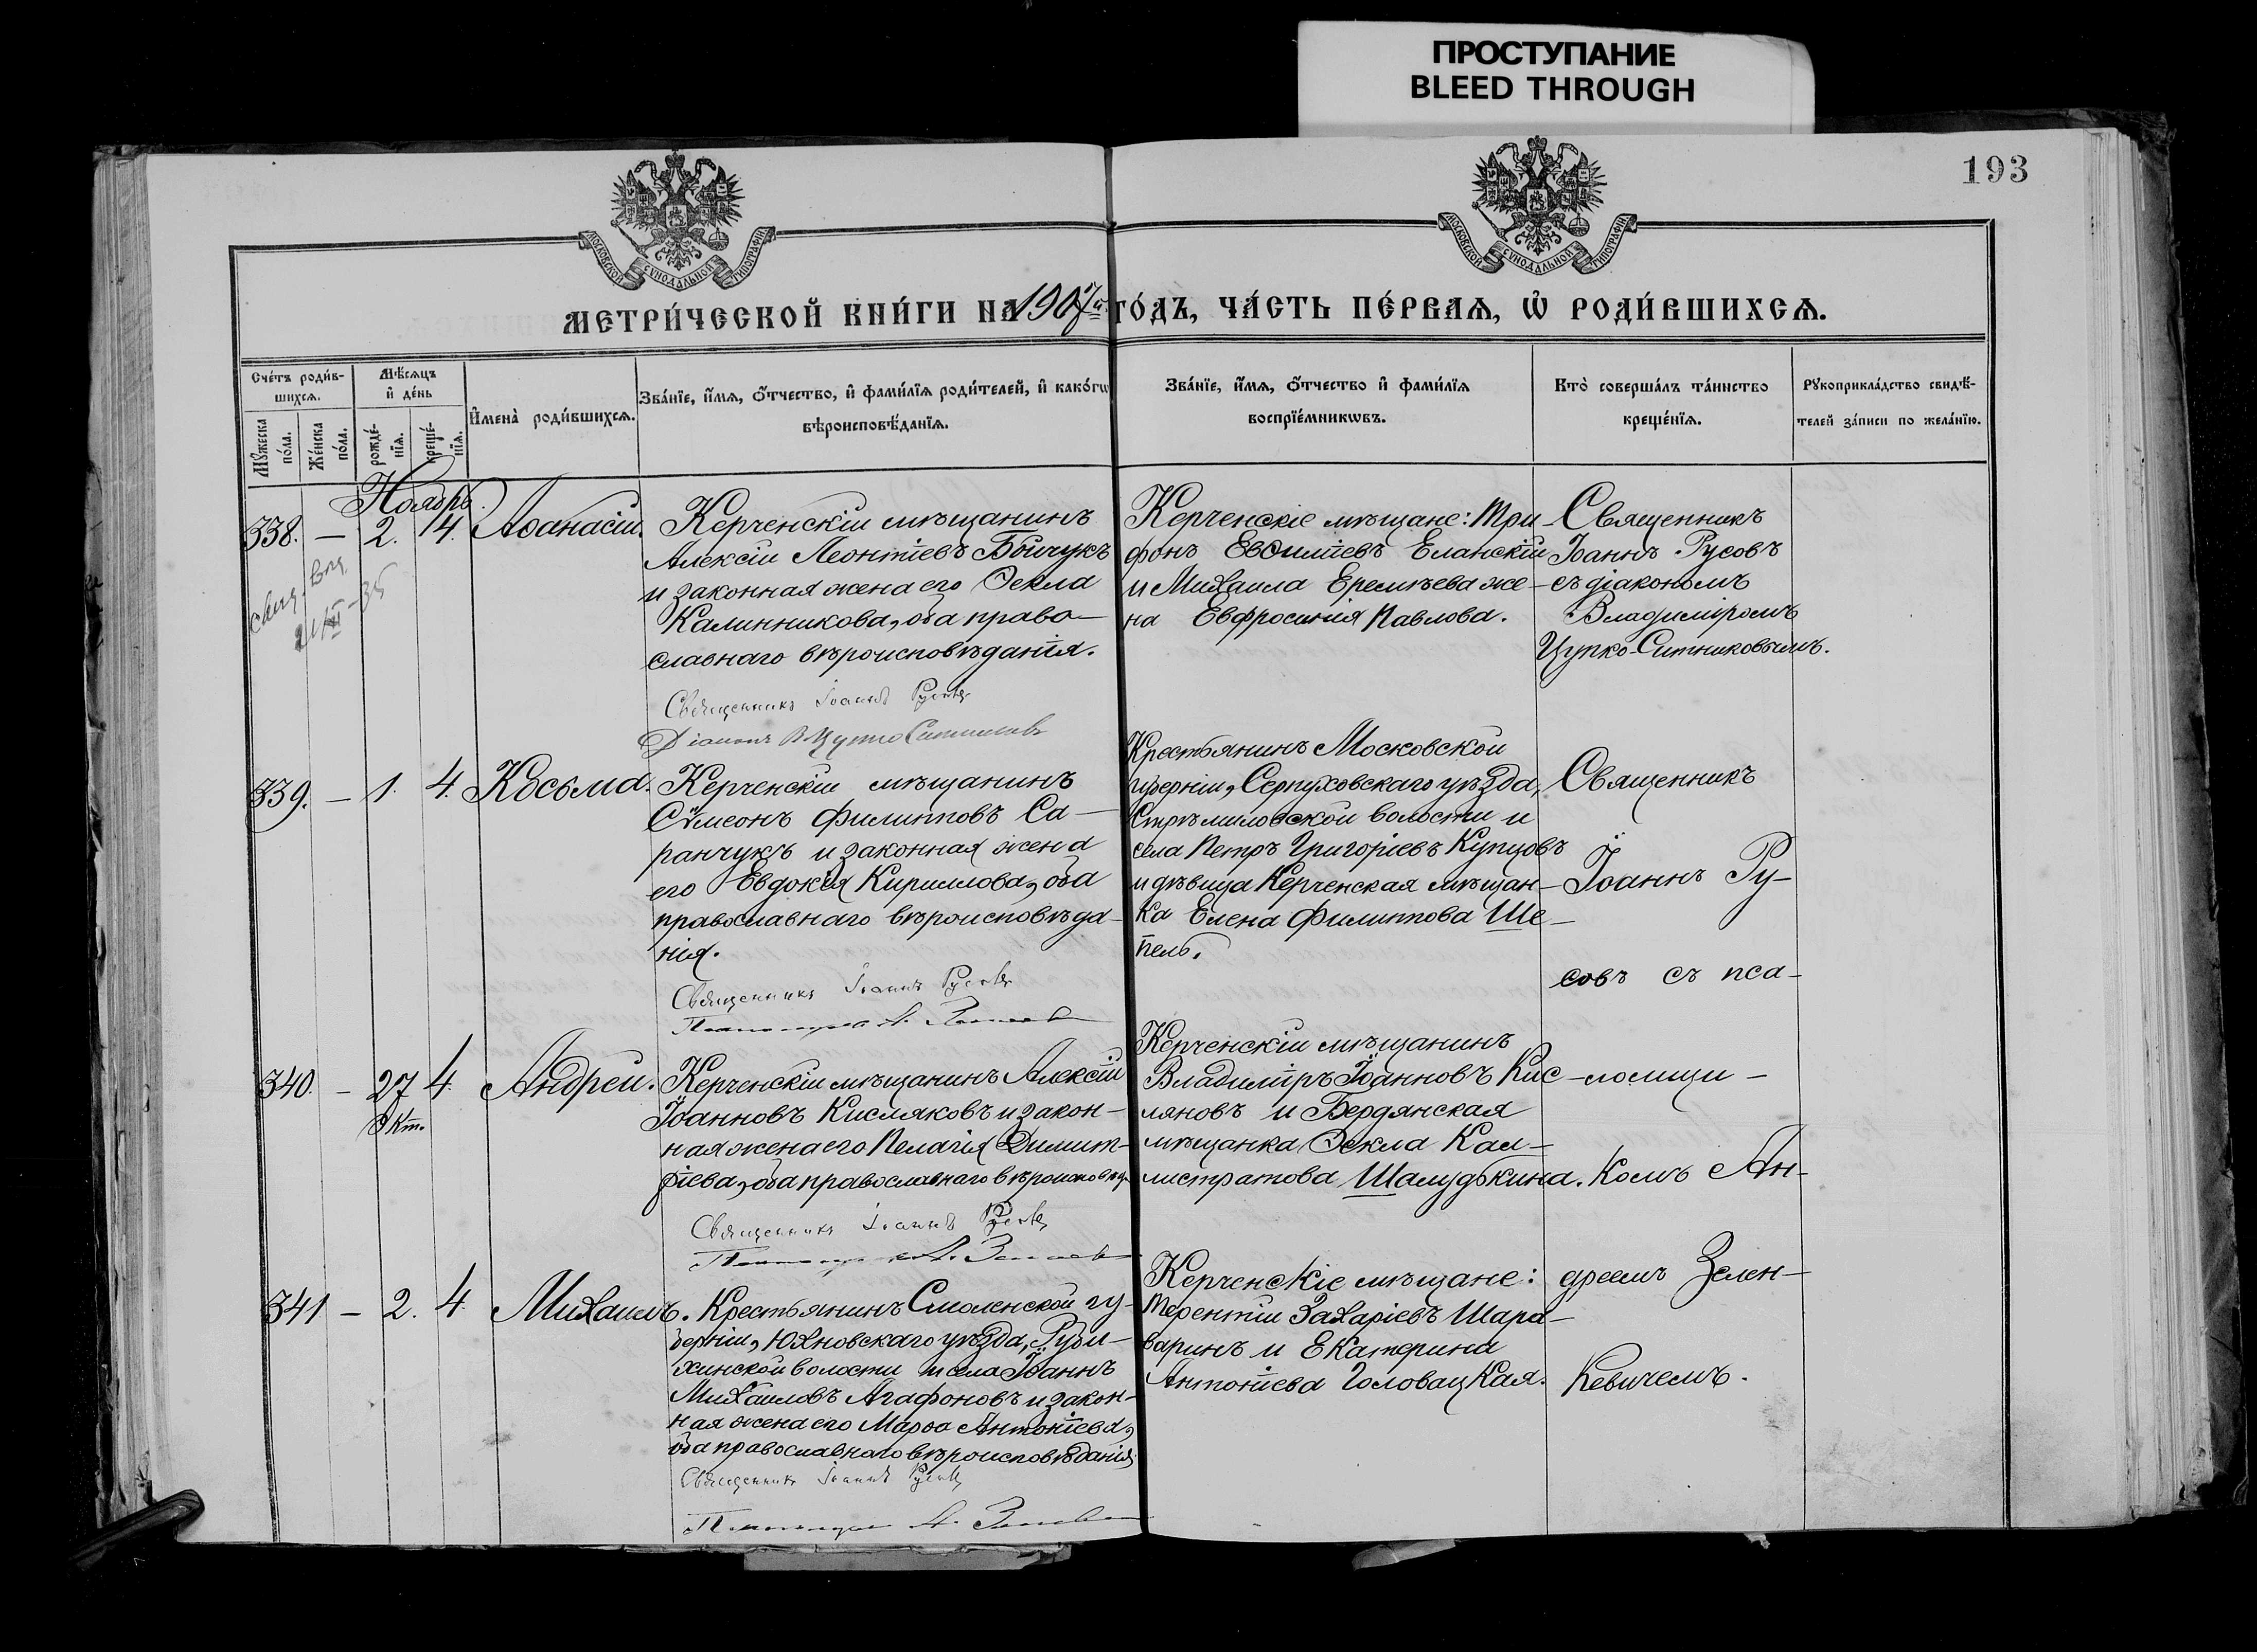 ПРОСТУПАНИЕ
BLEED THROUGH
193
МОСКОВСКОЙ СѴНОДАЛЬНОЙ ТИПОГРАФІИ
МОСКОВСКОЙ СѴНОДАЛЬНОЙ ТИПОГРАФІИ
МЕТРИ́ЧЕСКОЙ КНИ́ГИ НА 1907й ГО́ДЪ, ЧА́СТЬ ПЕ́РВАѦ, Ѡ РОДИ́ВШИХСѦ.
Сче́тъ роди́в-
шихсѧ.
Мѹ́жеска по́ла.
Же́нска по́ла.
Мѣ́сѧцъ и де́нь
рожде́-нїѧ.
креще́-нїѧ.
И҆мена̀ роди́вшихсѧ.
Зва́нїе, и҆́мѧ, ѻ҆́тчество, и҆ фами́лїѧ роди́телей, и҆ како́гѡ
вѣроисповѣ́данїѧ.
Зва́нїе, и҆́мѧ, ѻ҆́тчество и҆ фами́лїѧ
воспрїе́мникѡвъ.
Кто̀ соверша́лъ та́инство
креще́нїѧ.
Рѹкоприкла́дство свидѣ́-
телей за́писи по жела́нїю.
Ноябрь.
338. — 2. 4. Аѳанасій.
Керченскій мѣщанинъ
Алексій Леонтіевъ Бойчукъ
и законная жена его Ѳекла
Калинникова, оба право-
славнаго вѣроисповѣданія.
Священникъ Іоаннъ Русовъ
Діаконъ В Цупко Ситников
Керченскіе мѣщане: Три-
фонъ Евѳиміевъ Еланскій
и Михаила Еремѣева же-
на Евфросинія Павлова.
Священникъ
Іоаннъ Русовъ
съ діакономъ
Владиміромъ
Цупко-Ситниковымъ.
339. — 1. 4. Косьма.
Керченскій мѣщанинъ
Сѵмеонъ Филипповъ Са-
ранчукъ и законная жена
его Евдокія Кириллова, оба
православнаго вѣроисповѣда-
нія.
Священникъ Іоаннъ Русовъ
Крестьянинъ Московской
губерніи, Серпуховскаго уѣзда,
Стремиловской волости и
села Петръ Григоріевъ Купцовъ
и дѣвица Керченская мѣщан-
ка Елена Филиппова Ше-
пель.
Священникъ
Іоаннъ Ру-
совъ съ пса-
340. — 27 4. Андрей.
Окт.
Керченскій мѣщанинъ Алексій
Іоанновъ Кисляковъ и закон-
ная жена его Пелагія Димит-
ріева, оба православнаго вѣроисповѣд.
Священникъ Іоаннъ Русовъ
Керченскій мѣщанинъ
Владиміръ Іоанновъ Кис-
ляковъ и Бердянская
мѣщанка Ѳекла Кал-
листратова Шалудькина.
ломщи-
комъ Ан-
341 — 2. 4. Михаилъ.
Крестьянинъ Смоленской гу-
берніи, Юхновскаго уѣзда, Руби-
хинской волости и села Іоаннъ
Михаиловъ Агафоновъ и закон-
ная жена его Марѳа Антоніева,
оба православнаго вѣроисповѣданія.
Священникъ Іоаннъ Русовъ
Керченскіе мѣщане:
Терентій Захаріевъ Шара-
варинъ и Екатерина
Антоніева Головацкая.
дреемъ Зелен-
кевичемъ.